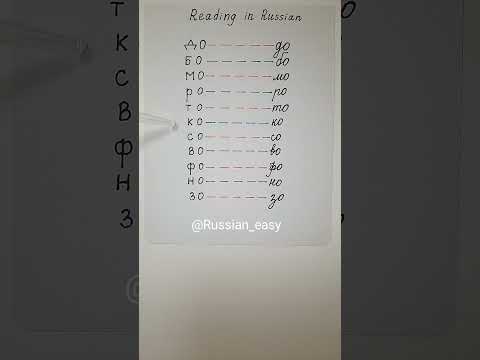 Reading in Russian
Д О — — — — — до
Б О — — — — — бо
М О — — — — — мо
р О — — — — — ро
т О — — — — — то
к О — — — — — ко
с О — — — — — со
в О — — — — — во
ф О — — — — — фо
н О — — — — — но
з О — — — — — зо
@Russian_easy
т
к
с
в
ф
н
з